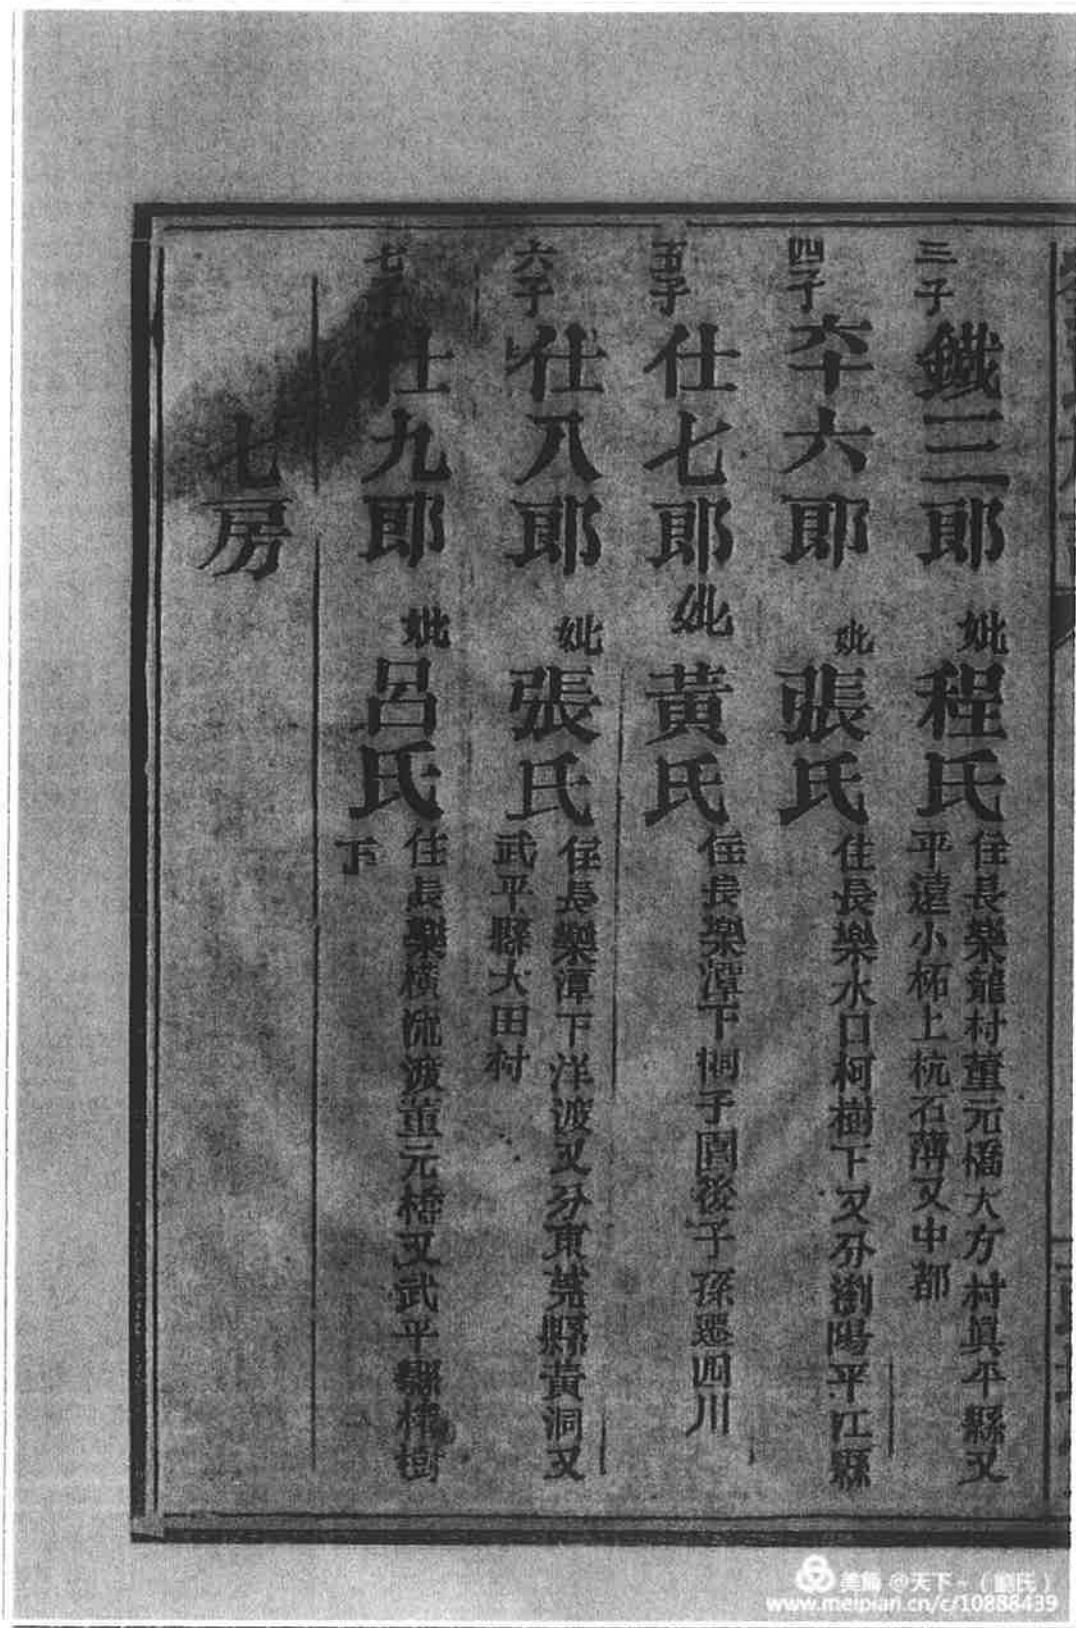 三子鐵三郎妣程氏住長樂龍村董元橋大方村眞平縣又
平遠小柘上杭石薄又中都
四子六十六郎妣張氏住長樂水口柯樹下又分瀏陽平江縣
五子仕七郎妣黃氏住長樂潭下子園後子孫遷四川
六子仕八郎妣張氏住長樂潭下洋渡又分東莞縣黃洞又
武平縣大田村
七子仕九郎妣呂氏住長樂橫流渡董元橋又武平縣樹
下
七房
美篇 @天下-（劉氏）
www.meipian.cn/c/10888439